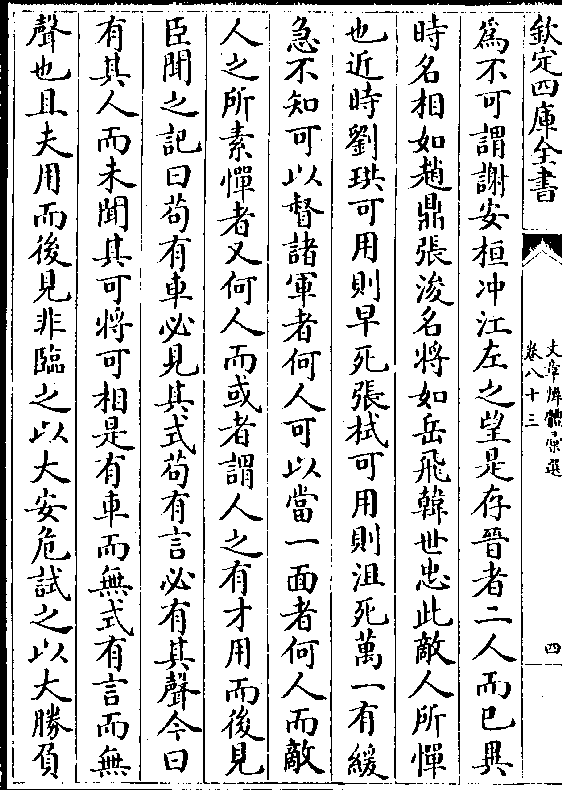 欽定四庫全書
文章辨體彙選
卷八十三
四
爲不可謂謝安桓冲江左之望是存晉者二人而已異
時名相如趙鼎張浚名將如岳飛韓世忠此敵人所憚
也近時劉珙可用則早死張栻可用則沮死萬一有緩
急不知可以督諸軍者何人可以當一面者何人而敵
人之所素憚者又何人而或者謂人之有才用而後見
臣聞之記曰苟有車必見其式苟有言必有其聲今曰
有其人而未聞其可將可相是有車而無式有言而無
聲也且夫用而後見非臨之以大安危試之以大勝負